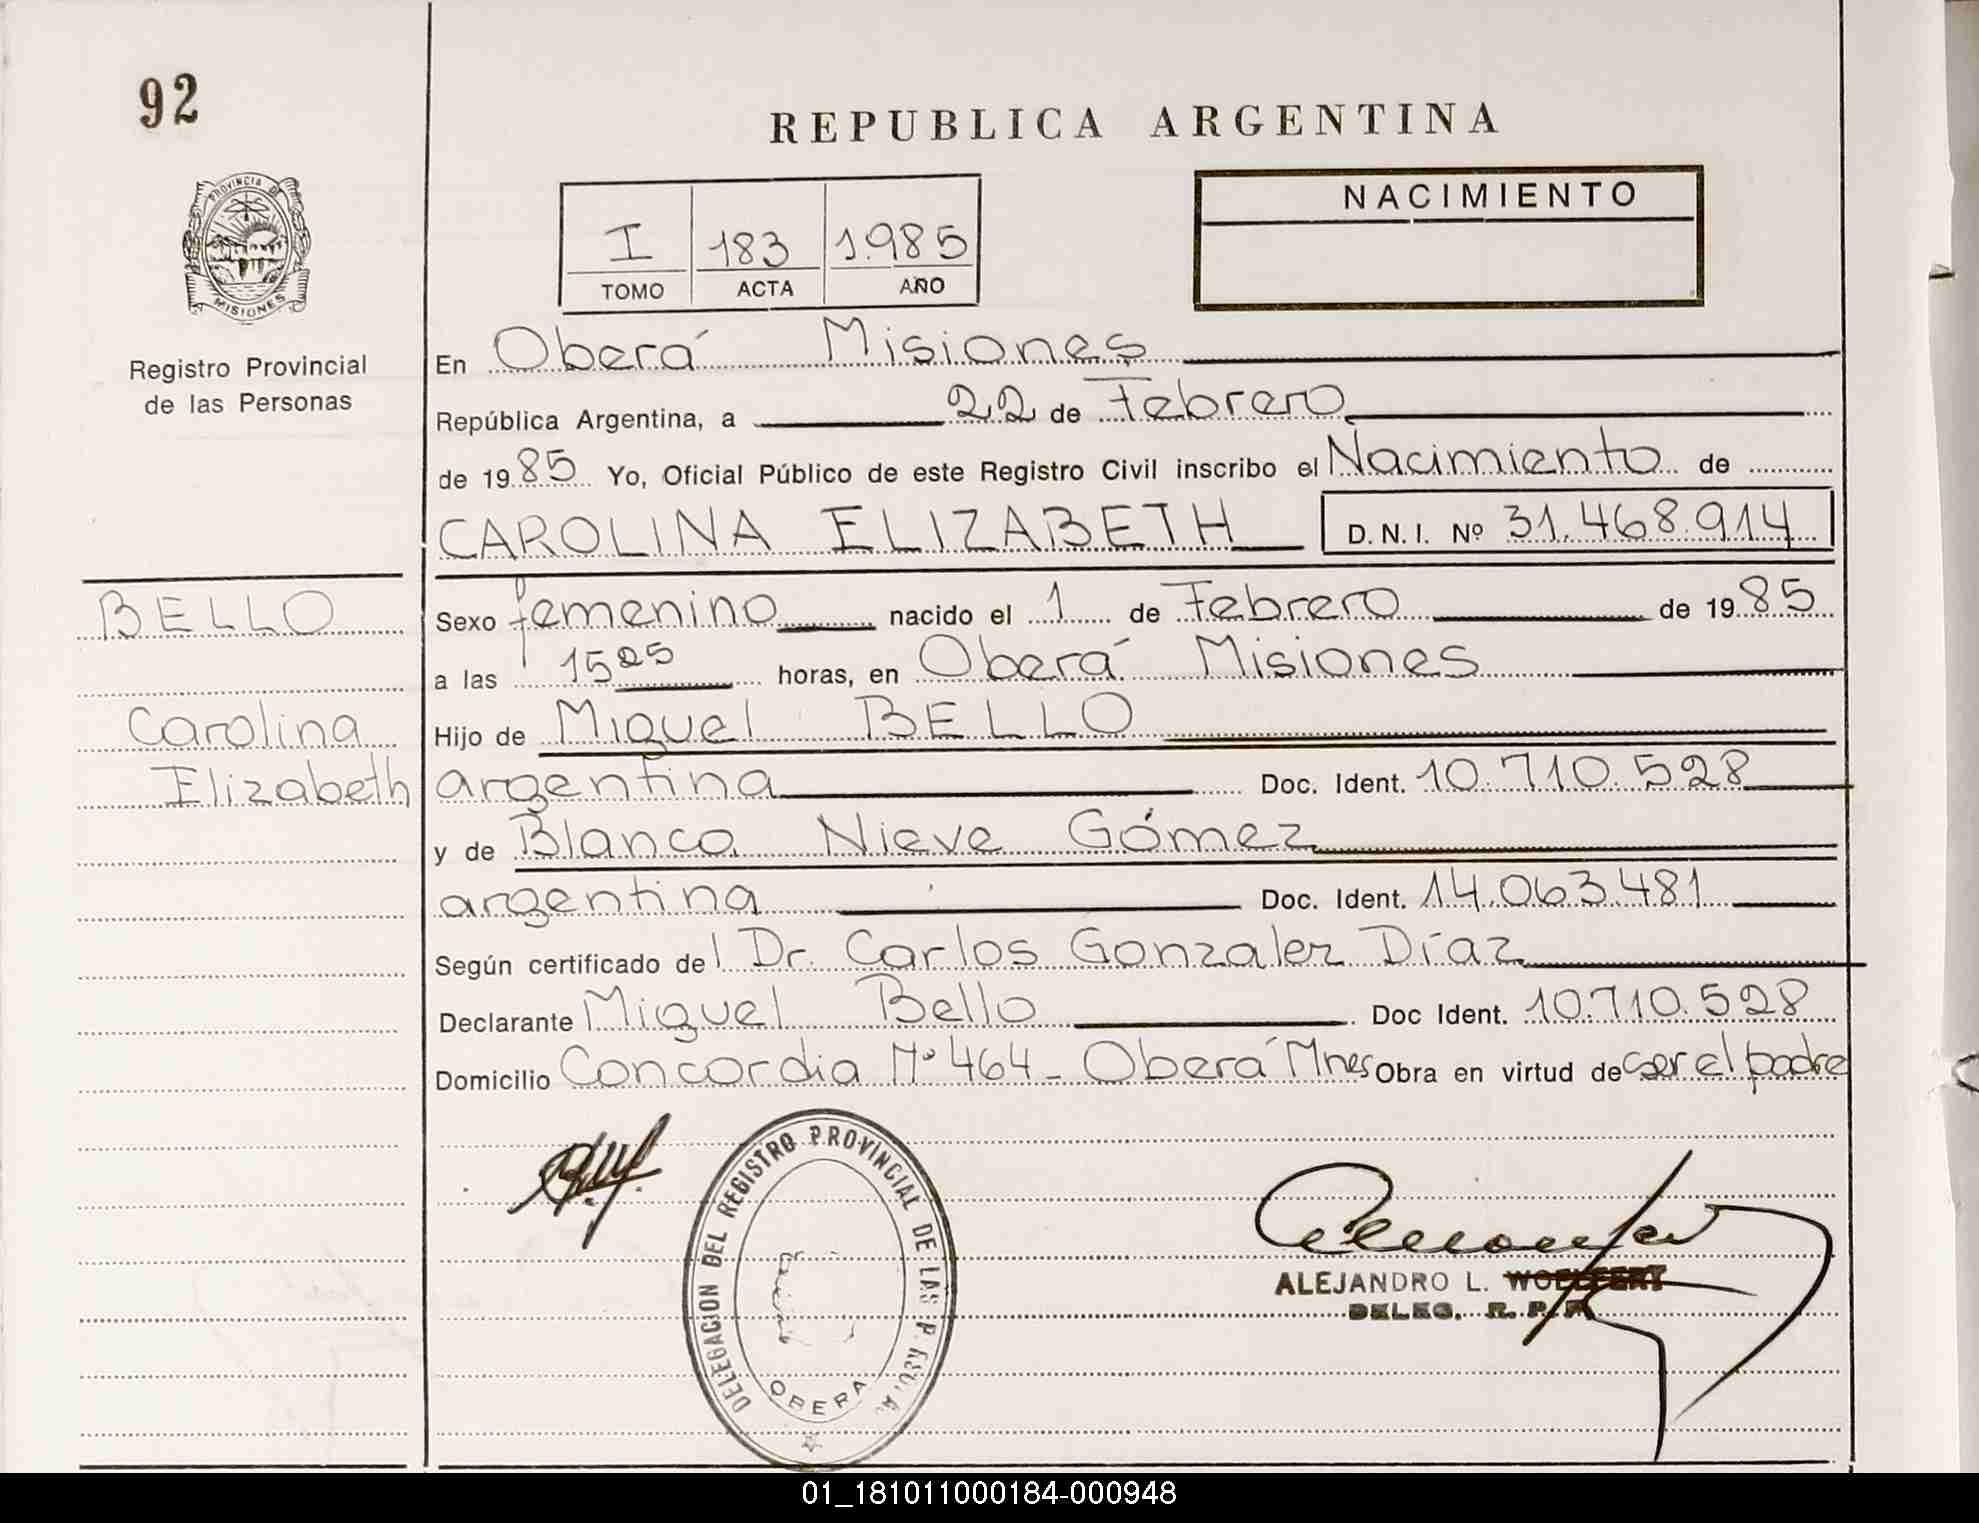 92
REPUBLICA ARGENTINA
PROVINCIA DE
MISIONES
Registro Provincial
de las Personas
I 183 1.985
TOMO ACTA AÑO
NACIMIENTO
En Oberá Misiones
República Argentina, a 22 de Febrero
de 1985 Yo, Oficial Público de este Registro Civil inscribo el Nacimiento de
CAROLINA ELIZABETH D.N.I. Nº 31.468.914
BELLO
Carolina
Elizabeth
Sexo femenino nacido el 1 de Febrero de 1985
a las 15 25 horas, en Oberá Misiones
Hijo de Miguel BELLO
argentina Doc. Ident. 10.710.528
y de Blanca Nieve Gómez
argentina Doc. Ident. 14.063.481
Según certificado del Dr. Carlos Gonzalez Díaz
Declarante Miguel Bello Doc Ident. 10.710.528
Domicilio Concordia Nº 464 - Oberá Mnes Obra en virtud de ser el padre
DELEGACION DEL REGISTRO PROVINCIAL DE LAS P
OBERA
ALEJANDRO L. WOELFERT
DELEG. R. P. P.
01_181011000184-000948